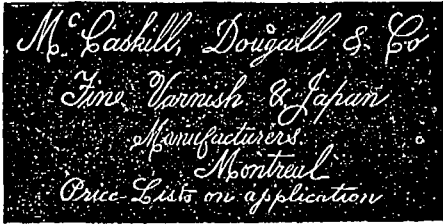 Mc Caskill, Dougall & Co
Fine Varnish & Japan
Manufacturers.
Montreal
Price-Lists on application